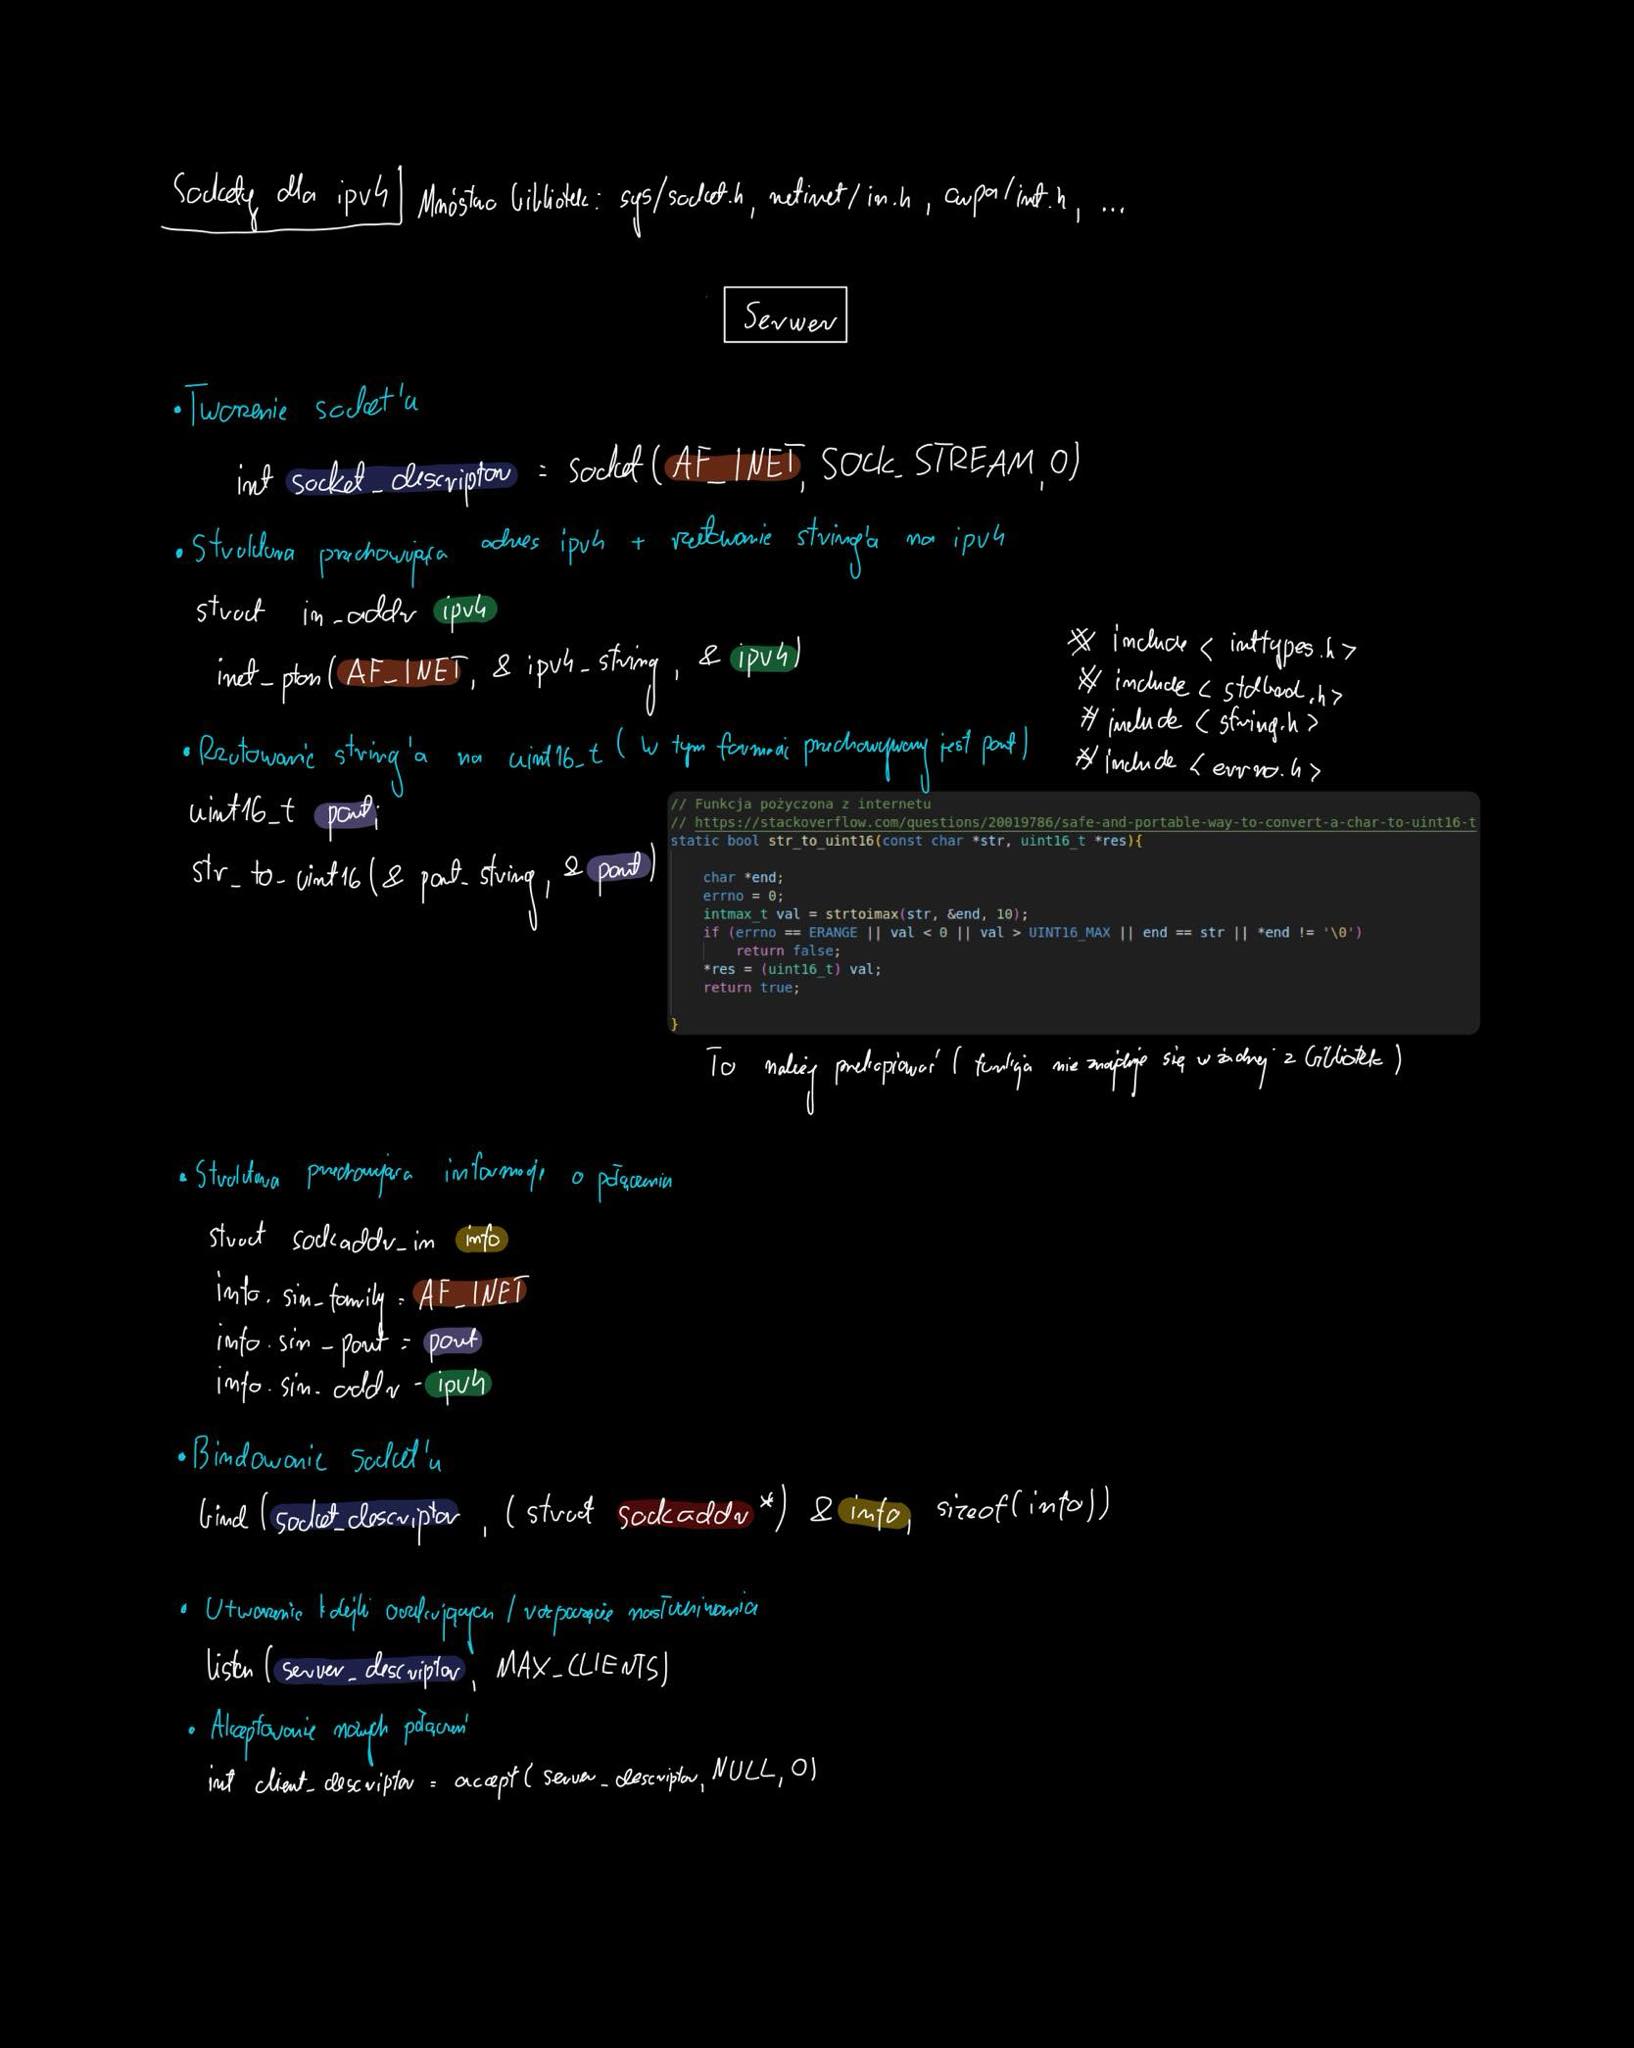 Sockety dla ipv4 Mnóstwo bibliotek: sys/socket.h, netinet/in.h, arpa/inet.h, ...
Serwer
• Tworzenie socket'u
int socket_descriptor = socket(AF_INET, SOCK_STREAM, 0)
• Struktura przechowująca adres ipv4 + rzutowanie string'a na ipv4
struct in_addr ipv4
inet_pton(AF_INET, & ipv4_string, & ipv4)
# include < inttypes.h >
# include < stdbool.h >
# include < string.h >
# include < errno.h >
• Rzutowanie string'a na uint16_t ( w tym formacie przechowywany jest port )
uint16_t port;
str_to_uint16(& port_string, & port)
// Funkcja pożyczona z internetu
// https://stackoverflow.com/questions/20019786/safe-and-portable-way-to-convert-a-char-to-uint16-t
static bool str_to_uint16(const char *str, uint16_t *res){
char *end;
errno = 0;
intmax_t val = strtoimax(str, &end, 10);
if (errno == ERANGE || val < 0 || val > UINT16_MAX || end == str || *end != '\0')
return false;
*res = (uint16_t) val;
return true;
}
To należy przekopiować ( funkcja nie znajduje się w żadnej z bibliotek )
• Struktura przechowująca informacje o połączeniu
struct sockaddr_in info
info.sin_family = AF_INET
info.sin_port = port
info.sin. addr = ipv4
• Bindowanie socket'u
bind (socket_descriptor, (struct sockaddr *) & info, sizeof(info))
• Utworzenie kolejki oczekujących / rozpoczęcie nasłuchiwania
listen (server_descriptor, MAX_CLIENTS)
• Akceptowanie nowych połączeń
int client_descriptor = accept( server_descriptor, NULL, 0)